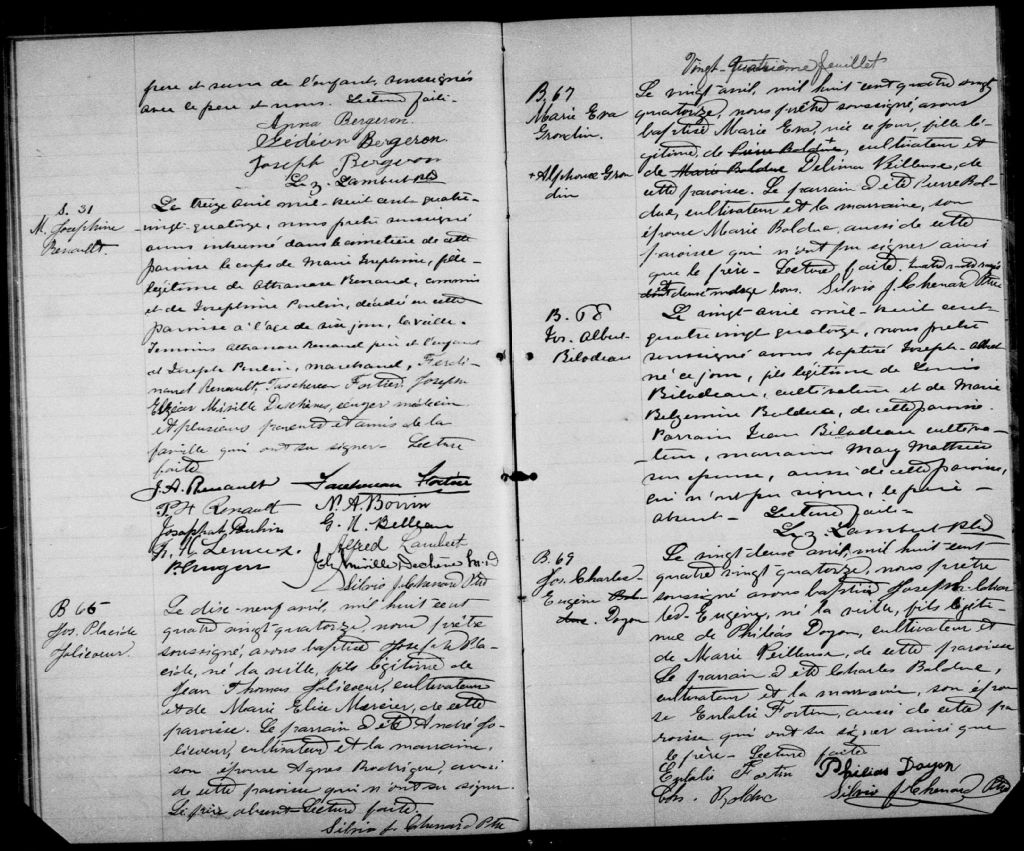 père et          de l'enfant, soussignés
avec le père et nous. Lecture faite.
Anna Bergeron
Gédéon Bergeron
Joseph Bergeron
Lz. Lambert Ptre
S. 31
M. Josephine
Renault.
Le treize avril mil-huit cent-quatre-
vingt-quatorze, nous prêtre soussigné
avons inhumé dans le cimetière de cette
paroisse le corps de Marie Josephine, fille
légitime de Athanase Renaud, commis
et de Josephine Poulin, décédé en cette
paroisse à l'age de six jours, la veille.
Temoins Athanase Renaud père de l'enfant
et Joseph Poulin, marchand, Ferdi-
nand Renault, Taschereau Fortier, Joseph
Elzear Mirille Deschènes,          médecin
et plusieurs parents et amis de la
famille qui ont su signer. Lecture
faite
J. A. Renault Taschereau Fortier
P. F. Renault N. A. Boivin
Josaphat Poulin G. N. Belleau
Alfred Lambert
Silvio J. Chenard Ptre
B 66
Jos. Placide
Jolicoeur.
Le dix-neuf avril, mil huit cent
quatre vingt quatorze nous prêtre
soussigné, avons baptisé Joseph Pla-
cide, né la veille, fils légitime de
Jean Thomas Jolicoeur, cultivateur
et de Marie Elise Mercier, de cette
paroisse. Le parrain a été André Jo-
licoeur, cultivateur et la marraine,
son épouse Agnes Rodrigue, aussi
de cette paroisse qui n'ont su signer.
Le père absent Lecture faite.
Silvio J. Chenard Ptre
Vingt-Quatrième feuillet
B. 67
Marie Eva
Grondin.
+ Alphonse Gron
din
Le vingt avril, mil huit cent quatre vingt
quatorze, nous prêtre soussigné, avons
baptisé Marie Eva, née ce jour, fille lé-
gitime de Pierre Bolduc +, cultivateur et
de Marie Bolduc Delima Veilleuse, de
cette paroisse. Le parrain a été Pierre Bol-
duc, cultivateur et la marraine, son
épouse Marie Bolduc, aussi de cette
paroisse qui n'ont pu signer ainsi
que le père - Lecture faite.
         bons. Silvio J. Chenard Ptre
B. 68
Jos. Albert
Bilodeau
Le vingt-avril mil-huit cent-
quatre vingt quatorze, nous prêtre
soussigné avons baptisé Joseph-Albert
né ce jour, fils légitime de Louis
Bilodeau, cultivateur et de Marie
         Bolduc, de cette paroisse.
Parrain Jean Bilodeau cultiva-
teur, marraine Mary Mathieu
son épouse, aussi de cette paroisse,
qui n'ont pu signer, le père
absent- Lecture faite-
Lz. Lambert Ptre
B. 69
Jos. Charles-
Eugène
Doyon
Le vingt deux avril, mil huit cent
quatre vingt quatorze, nous prêtre
soussigné avons baptisé Joseph Char
les Eugène, né la veille, fils légiti-
me de Philias Doyon, cultivateur et
de Marie Veilleuse, de cette paroisse
Le parrain a été Charles Bolduc,
cultivateur et la marraine, son épou
se Eulalie Fortin, aussi de cette pa
roisse qui ont su signer ainsi que
le père- Lecture faite
Eulalie Fortin Philias Doyon
Chs. Bolduc Silvio J. Chenard Ptre